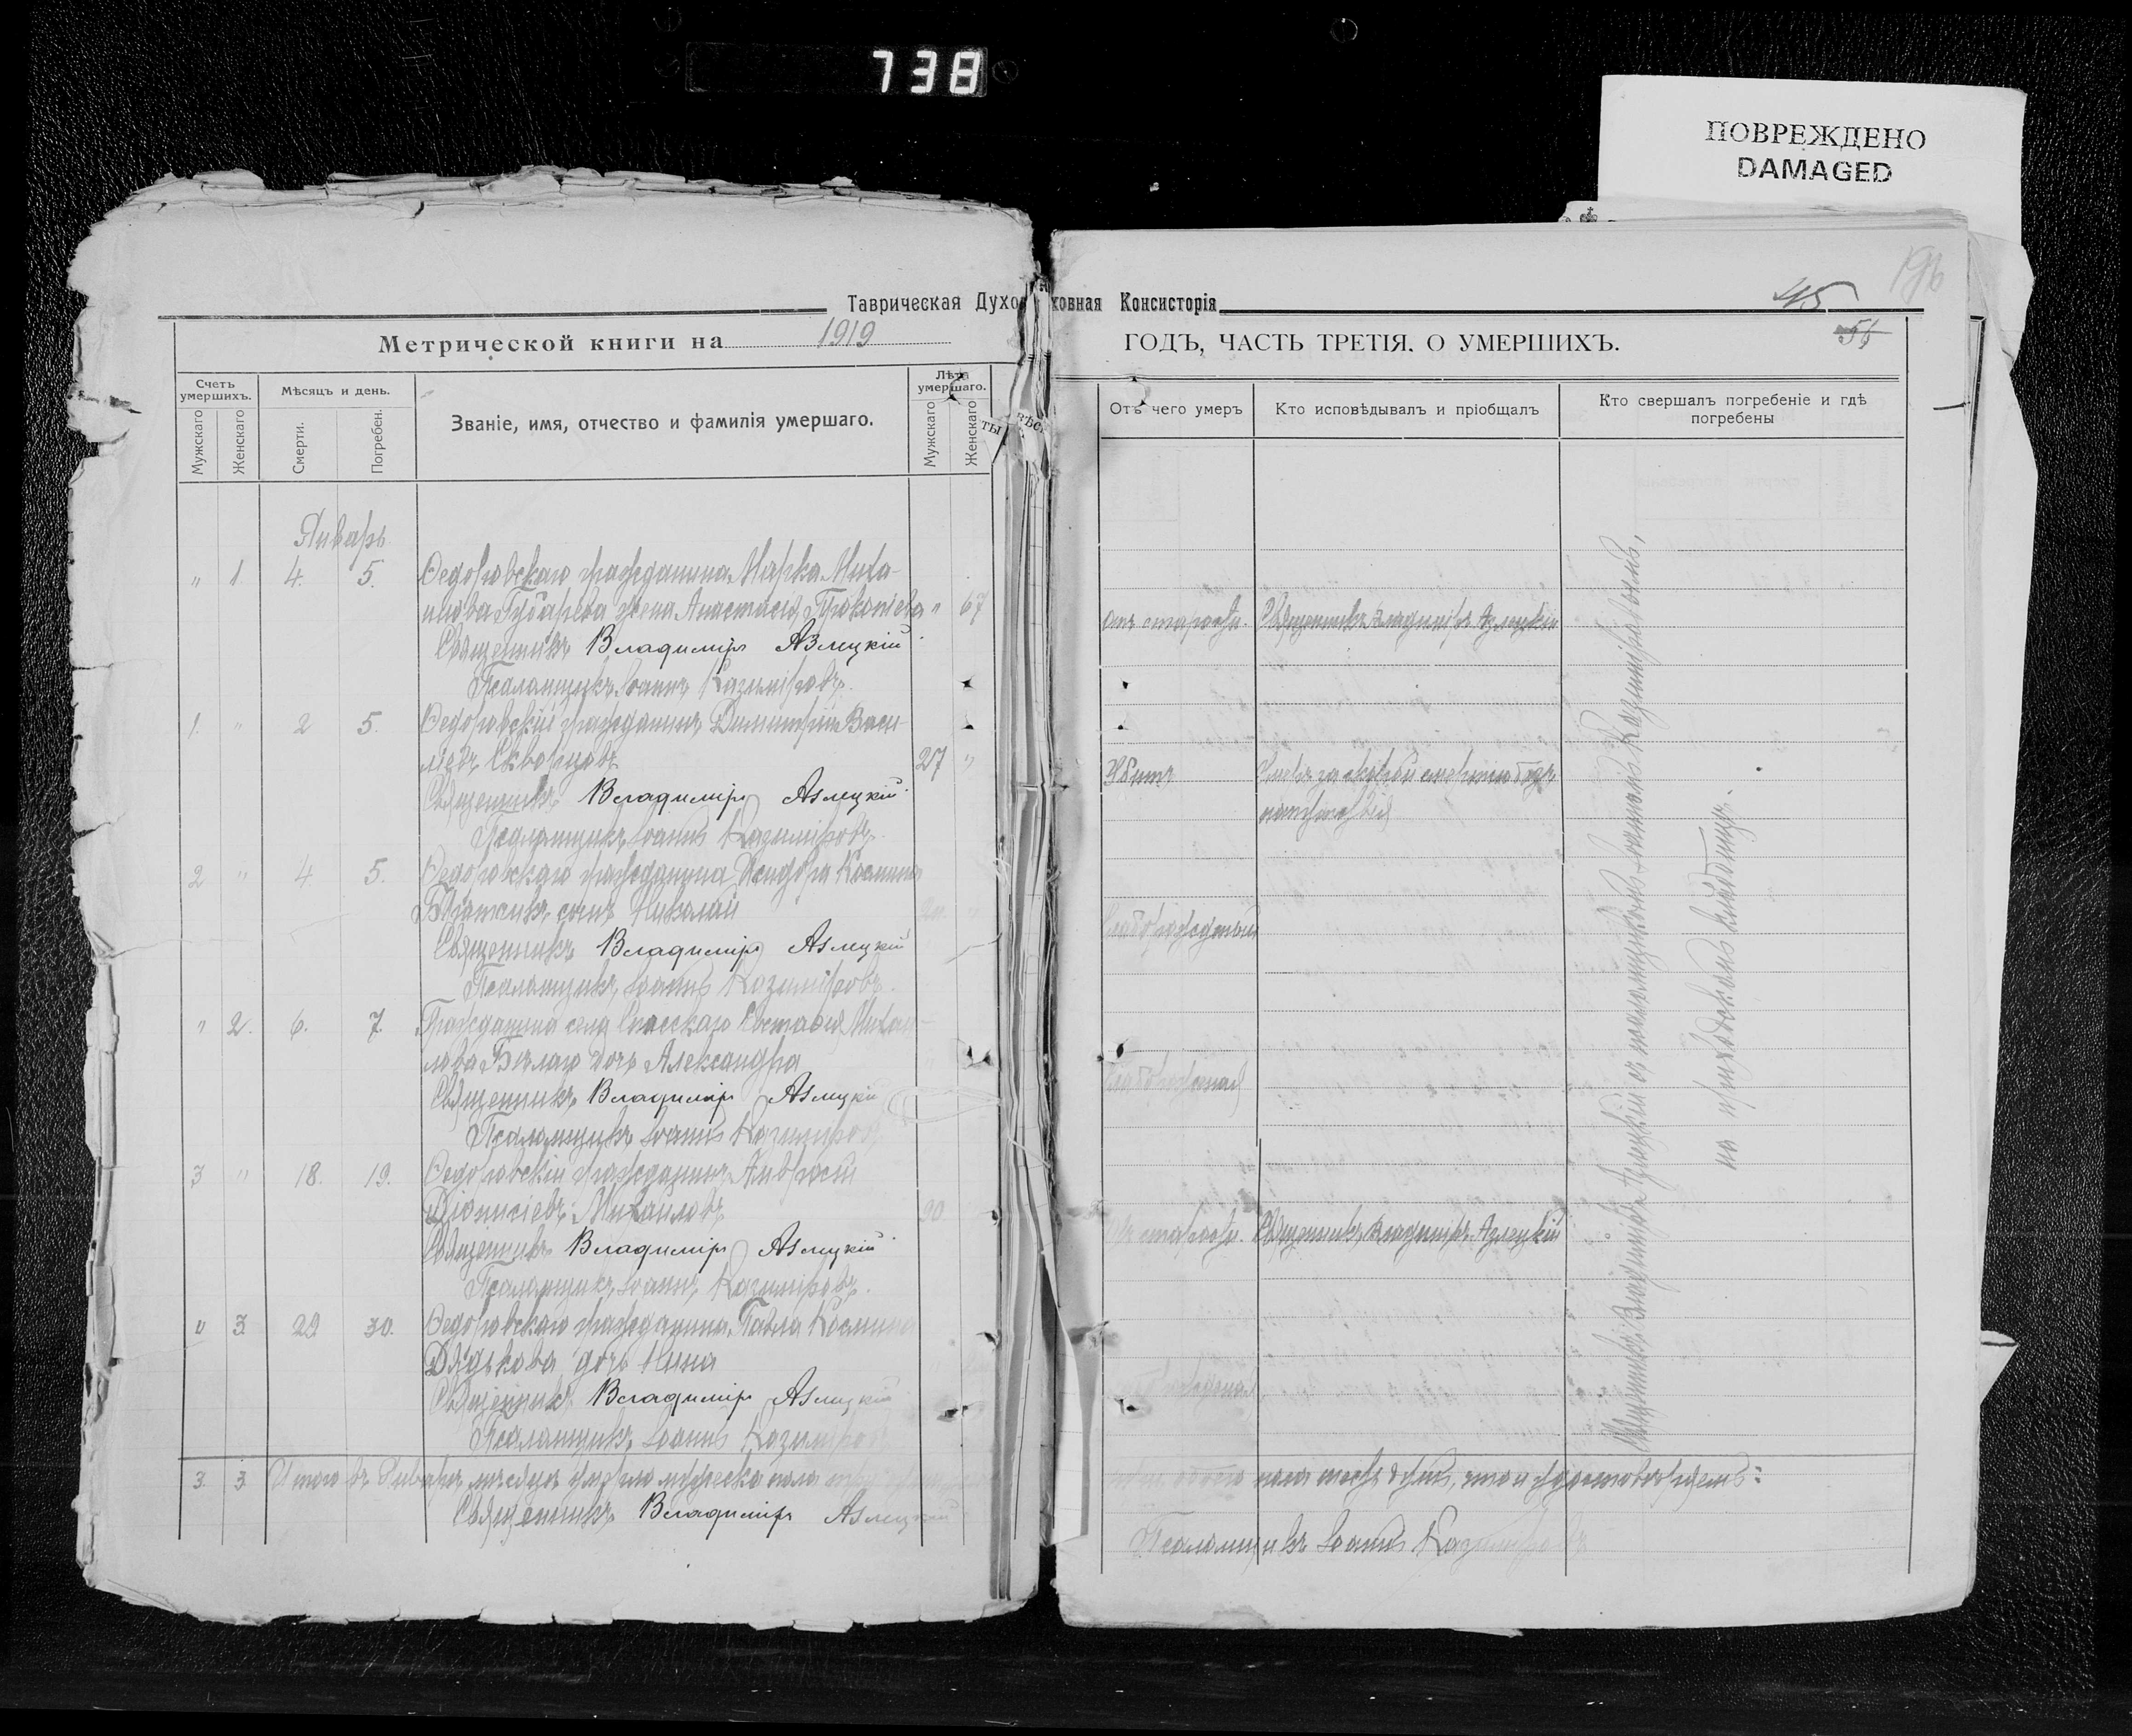 738
ПОВРЕЖДЕНО
DAMAGED
196
45
56
Таврическая Духовная Консисторія
Метрической книги на 1919 ГОДЪ, ЧАСТЬ ТРЕТІЯ, О УМЕРШИХЪ.
Счетъ умершихъ.
Мужскаго
Женскаго
Мѣсяцъ и день.
Смерти.
Погребен.
Званіе, имя, отчество и фамилія умершаго.
Лѣта умершаго.
Мужскаго
Женскаго
Отъ чего умеръ
Кто исповѣдывалъ и пріобщалъ
Кто свершалъ погребеніе и гдѣ погребены
Январь
" 1. 4. 5. Ѳедоровскаго гражданина Марка Миха-
илова Губарева жена Анастасія Прокопіева " 67 Отъ старости. Священникъ Владиміръ Азлецкій
Священникъ Владиміръ Азлецкій
Псаломщикъ Іоаннъ Казиміровъ.
1. " 2 5. Ѳедоровскій гражданинъ Димитрій Васи-
ліевъ Скворцовъ 27 " Убитъ Умеръ за скорой смертію безъ
Священникъ Владиміръ Азлецкій
Псаломщикъ Іоаннъ Казиміровъ.
2 " 4. 5. Ѳедоровскаго гражданина Исидора Космина
сынъ Николай
Священникъ Владиміръ Азлецкій
Псаломщикъ Іоаннъ Казиміровъ.
" 2. 6. 7. Гражданина села Спасскаго Евстафія Михаи-
лова Бѣлаго дочь Александра
Священникъ Владиміръ Азлецкій
Псаломщикъ Іоаннъ Казиміровъ
3 " 18. 19. Ѳедоровскій гражданинъ Амвросій
Діонисіевъ Михайловъ 90 старости. Священникъ Владиміръ Азлецкій
Священникъ Владиміръ Азлецкій
Псаломщикъ Іоаннъ Казиміровъ.
" 3 29 30. Ѳедоровскаго гражданина Павла Космина
Дядькова дочь Нина
Священникъ Владиміръ Азлецкій
Псаломщикъ Іоаннъ Казиміровъ
Священникъ Владиміръ Азлецкій съ псаломщикомъ Іоанномъ Казиміровымъ,
на приходскомъ кладбищѣ.
3. 3. Итого въ Январѣ мѣсяцѣ умерло мужеска пола три обоего пола шесть душъ, что и удостовѣряемъ:
Священникъ Владиміръ Азлецкій
Псаломщикъ Іоаннъ Казиміровъ